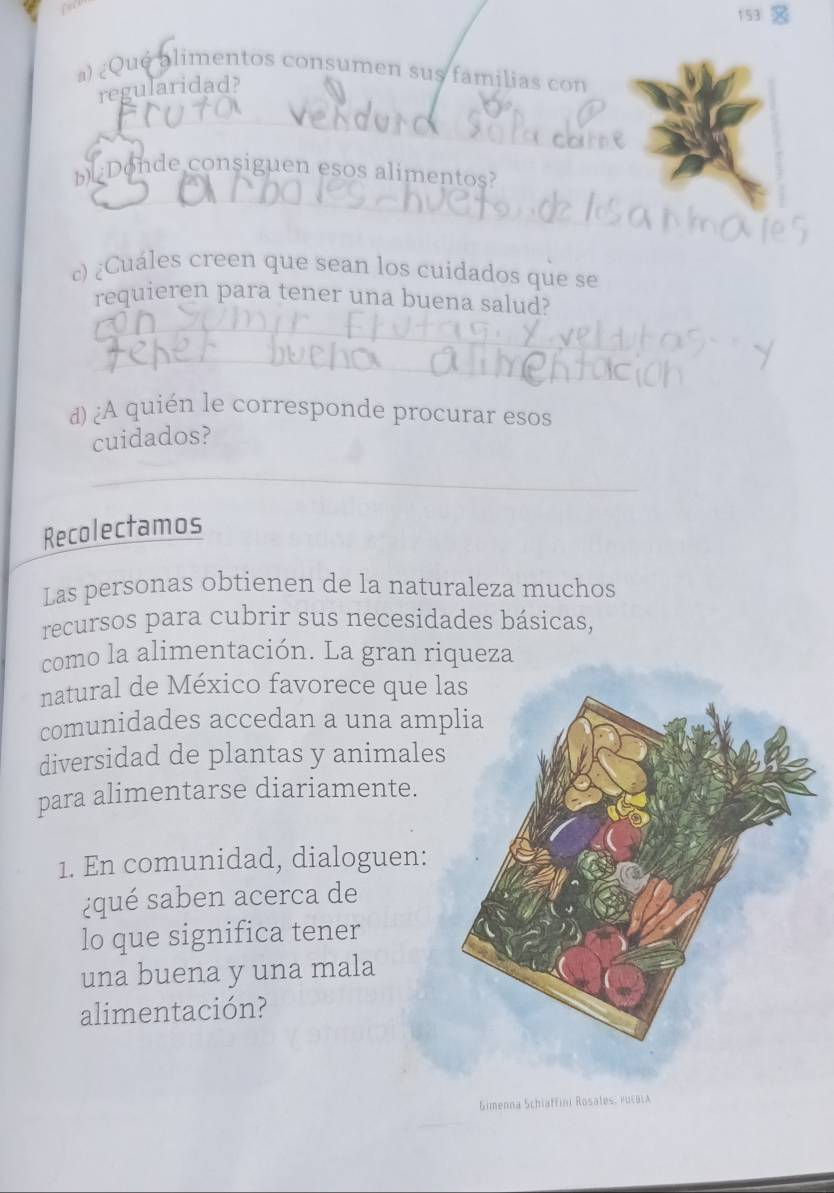 153
a) ¿Qué alimentos consumen sus familias con
regularidad?
Fruta vendura sopa carne
b) ¿Dónde consiguen esos alimentos?
arboles-hueto..de los anmales
c) ¿Cuáles creen que sean los cuidados que se
requieren para tener una buena salud?
con sumir Frutas. y verturas.. y
tener buena alimentacion
d) ¿A quién le corresponde procurar esos
cuidados?
Recolectamos
Las personas obtienen de la naturaleza muchos
recursos para cubrir sus necesidades básicas,
como la alimentación. La gran riqueza
natural de México favorece que las
comunidades accedan a una amplia
diversidad de plantas y animales
para alimentarse diariamente.
1. En comunidad, dialoguen:
¿qué saben acerca de
lo que significa tener
una buena y una mala
alimentación?
Gimenna Schiaffini Rosales, PUEBLA